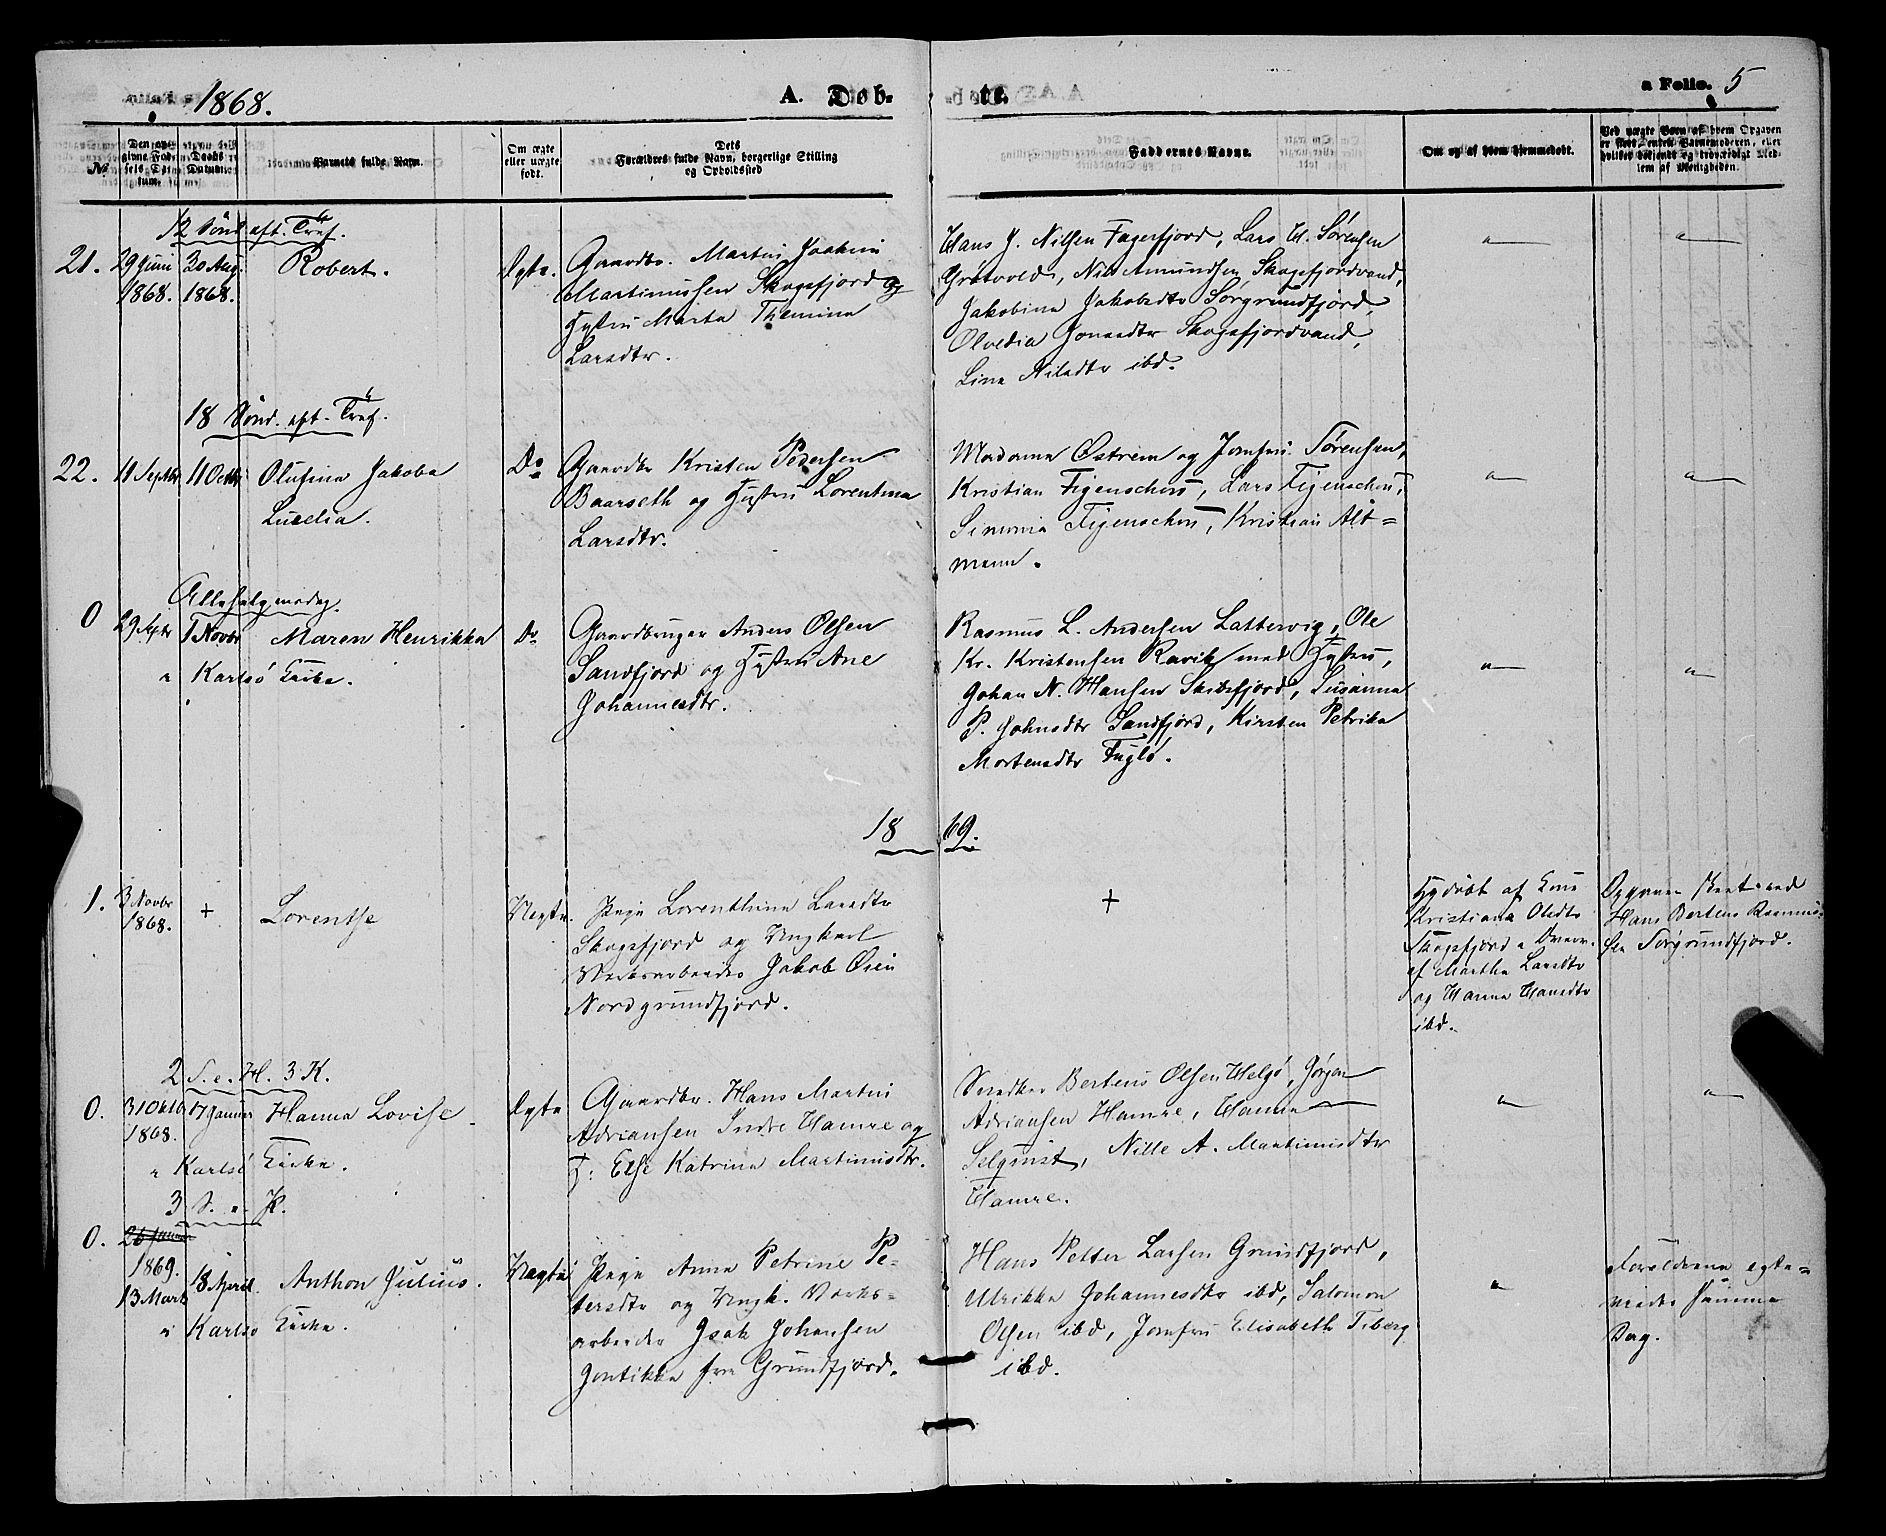 1868.
A. Døb-
te.
a Folio. 5
№
Den opgivne Fødsels Datum.
Daabs Datum.
Barnets fulde Navn.
Om ægte eller uægte født.
Dets Forældres fulde Navn, borgerlige Stilling og Opholdssted
Faddernes Navne.
Om og af hvem hjemmedøbt.
12 Sønd. eft. Tref.
21. 29 Juni 30 Aug. Robert. Ægte.
1868. 1868.
Gaardbr. Martin Joakim
Martinussen Skogsfjord og
Hustru Marta Themina
Larsdtr.
Hans J. Nilsen Fagerfjord, Lars H. Sørensen
Grøtvold, Nils Amundsen Skogsfjordvand,
Jakobina Jakobsdtr Sørgrundfjord,
Olvedia Jonasdtr Skogsfjordvand,
Lina Nilsdtr ibd.
18 Sønd. eft. Tref.
22. 11 Septbr 11 Octbr Olufina Jakoba Do
Lucelia.
Gaardbr Kristen Pedersen
Baarseth og Hustru Lorentina
Larsdtr.
Madame Østrem og Jomfru Sørensen,
Kristian Figenschou, Lars Figenschou,
Simonia Figenschou, Kristian Alt=
mann.
Allehelgensdag.
0 29 Septr 1 Novbr Maren Henrikka Do
i Karlsö Kirke.
Gaardbruger Anders Olsen
Sandfjord og Hustru Ane
Johannesdtr.
Rasmus L. Andersen Lattervig, Ole
Kr. Kristensen Ravik med Hustru,
Johan N. Hansen Skibsfjord, Susanna
P. Johnsdtr Sandfjord, Kirsten Petrika
Mortensdtr Fuglö.
18 69.
1. 3 Novbr + Lorentse Uægte.
1868.
Pige Lorenthina Larsdtr
Skogsfjord og Ungkarl
Værksarbeider Jakob Oisen
Nordgrundfjord.
+
Hjdöbt af Enke
Kristiana Olsdtr
Skogsfjord
af Martha Larsdtr
og Hanna Hansdtr
ibd.
Opgaven skeet ved
Hans Bertens Rasmus-
sen Sørgrundfjord.
2 S. e. H. 3 K.
0. 31 Oktbr 17 Januar Hanna Lovise. Ægte
1868.
i Karlsö Kirke.
Gaardbr. Hans Martin
Adriansen Indre Hamre og
H: Else Katrina Martinusdtr.
Smedker Bertens Olsen Helgö, Jørgen
Adriansen Hamre, Hanna
Selqvist, Nille A. Martinusdtr
Hamre.
3 S. e. P.
0. 26 Januar
1869.
13 Marts 18 April. Anthon Julius. Uægte
i Karlsö Kirke.
Pige Anna Petrine Pe-
tersdtr og Ungk. Værks-
arbeider Isak Johansen
Jontikka fra Grundfjord.
Hans Petter Larsen Grundfjord,
Ulrikka Johannesdtr ibd, Salomon
Olsen ibd, Jomfru Elisabeth Tiberg
ibd.
Forældrene egte=
viedes samme
Dag.